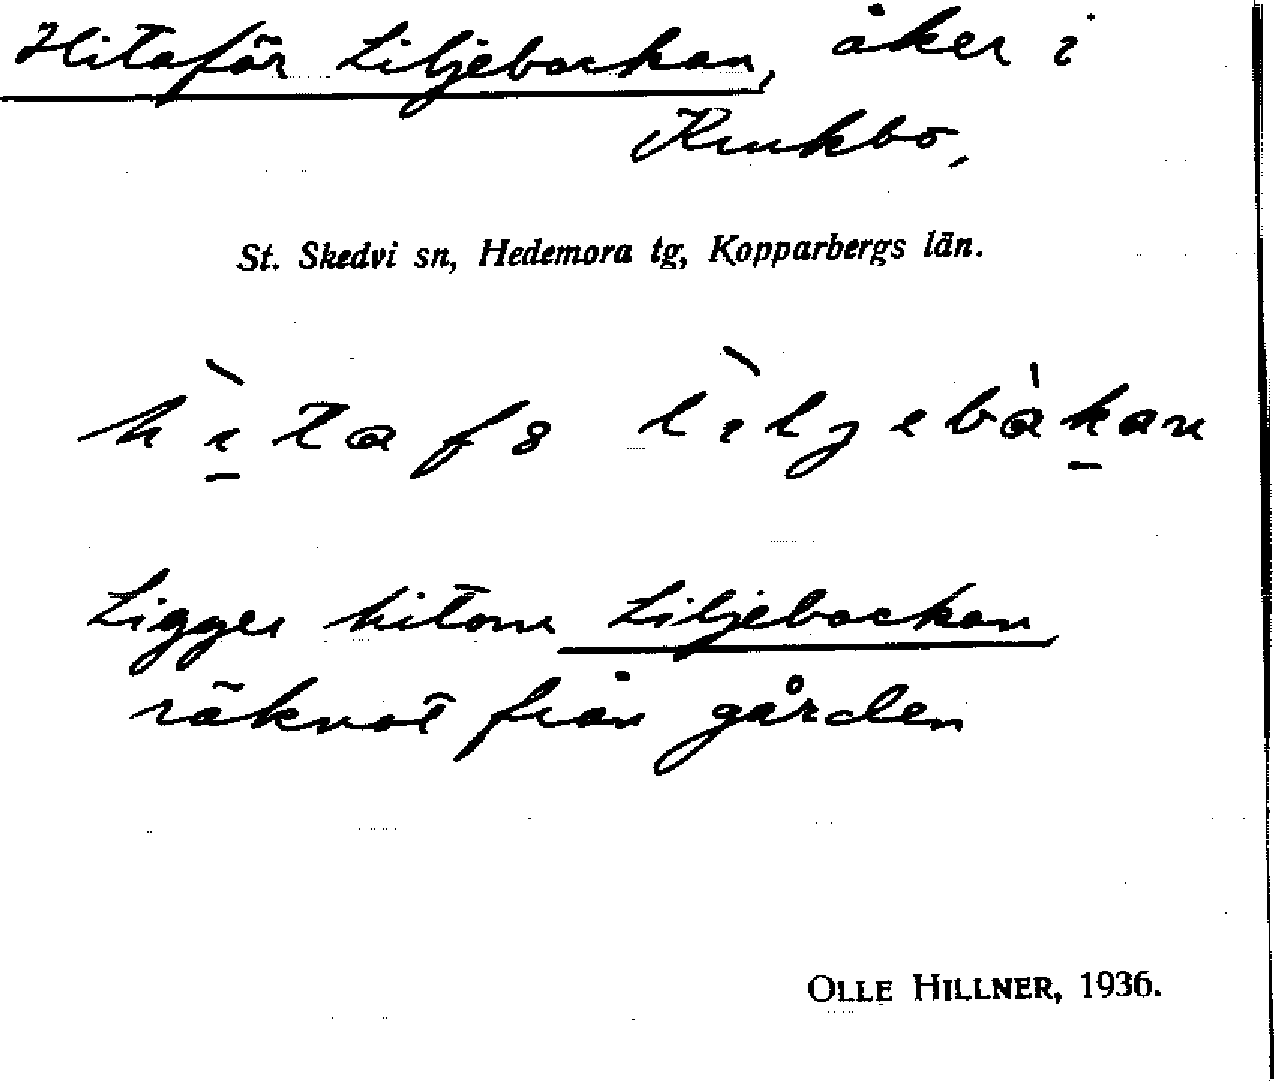 Hitaför Liljebackan, åker i
Kukbo,
St. Skedvi sn, Hedemora tg, Kopparbergs län.
Ligger hitom Liljebackan
räknat från gården
OLLE HILLNER, 1936.